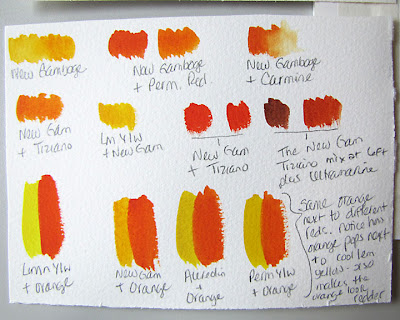 New Gamboge
New Gamboge
+ Perm. Red
New Gamboge
+ Carmine
New Gam
+ Tiziano
Lm Ylw
+ New Gam
New Gam
+ Tiziano
The New Gam
Tiziano mix at left
plus Ultramarine
Lmn Ylw
+ Orange
New Gam
+ Orange
+
Orange
Perm Ylw
+ Orange
Same orange
next to different
notice how
orange pops next
to cool lem
yellow - also
makes the
orange look
redder